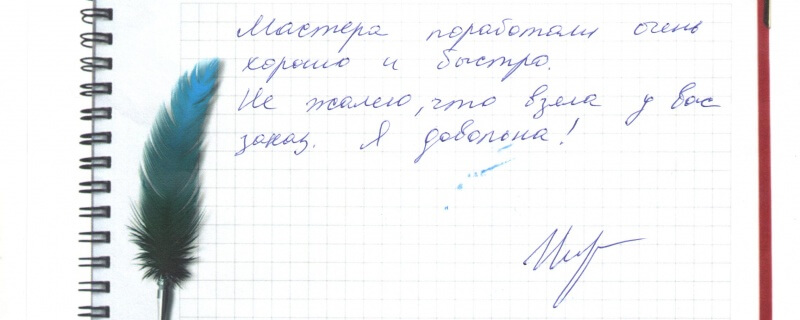 Мастера поработали очень
хорошо и быстро.
Не жалею, что взяла у вас
заказ. Я довольна!